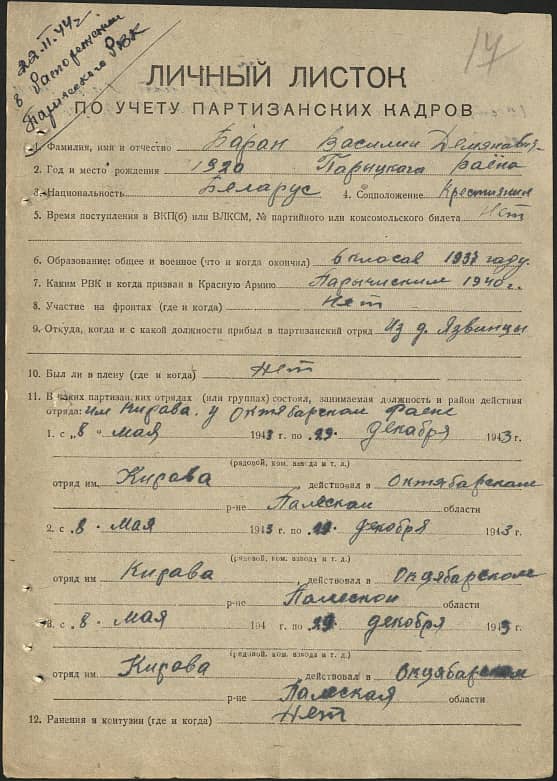 22.II.44 г
в распоряжении
Паричского РВК
17
ЛИЧНЫЙ ЛИСТОК
ПО УЧЕТУ ПАРТИЗАНСКИХ КАДРОВ
1. Фамилия, имя и отчество Баран Василий Демянавич
2. Год и место рождения 1920 Парыцкага раёна
3. Национальность Беларус 4. Соцположение Крестиянин
5. Время поступления в ВКП(б) или ВЛКСМ, № партийного или комсомольского билета Нет
6. Образование: общее и военное (что и когда окончил) 6 класав 1937 году.
7. Каким РВК и когда призван в Красную Армию Парычиским 1940 г.
8. Участие на фронтах (где и когда) Нет
9. Откуда, когда и с какой должности прибыл в партизанский отряд Из д. Язвинцы
10. Был ли в плену (где и когда) Нет
11. В каких партизан.ких отрядах (или группах) состоял, занимаемая должность и район действия
отряда: им Кирава. у Октябарском раене
1. с „8" мая 1943 г. по „29" декабря 1943 г.
(рядовой, ком. взвода и т. д.)
отряд им. Кирава, действовал в Октябарском
р-не Палескай области
2. с „8" мая 1943 г. по „29" декабря 1943 г.
(рядовой, ком. взвода и т. д.)
отряд им. Кирава, действовал в Октябарском
р-не Палескои области
3. с „8" мая 194 г. по „29" декабря 1943 г.
(рядовой, ком. взвода и т. д.)
отряд им. Кирава действовал в Октябарском
р-не Палеская области
12. Ранения и контузии (где и когда) Нет